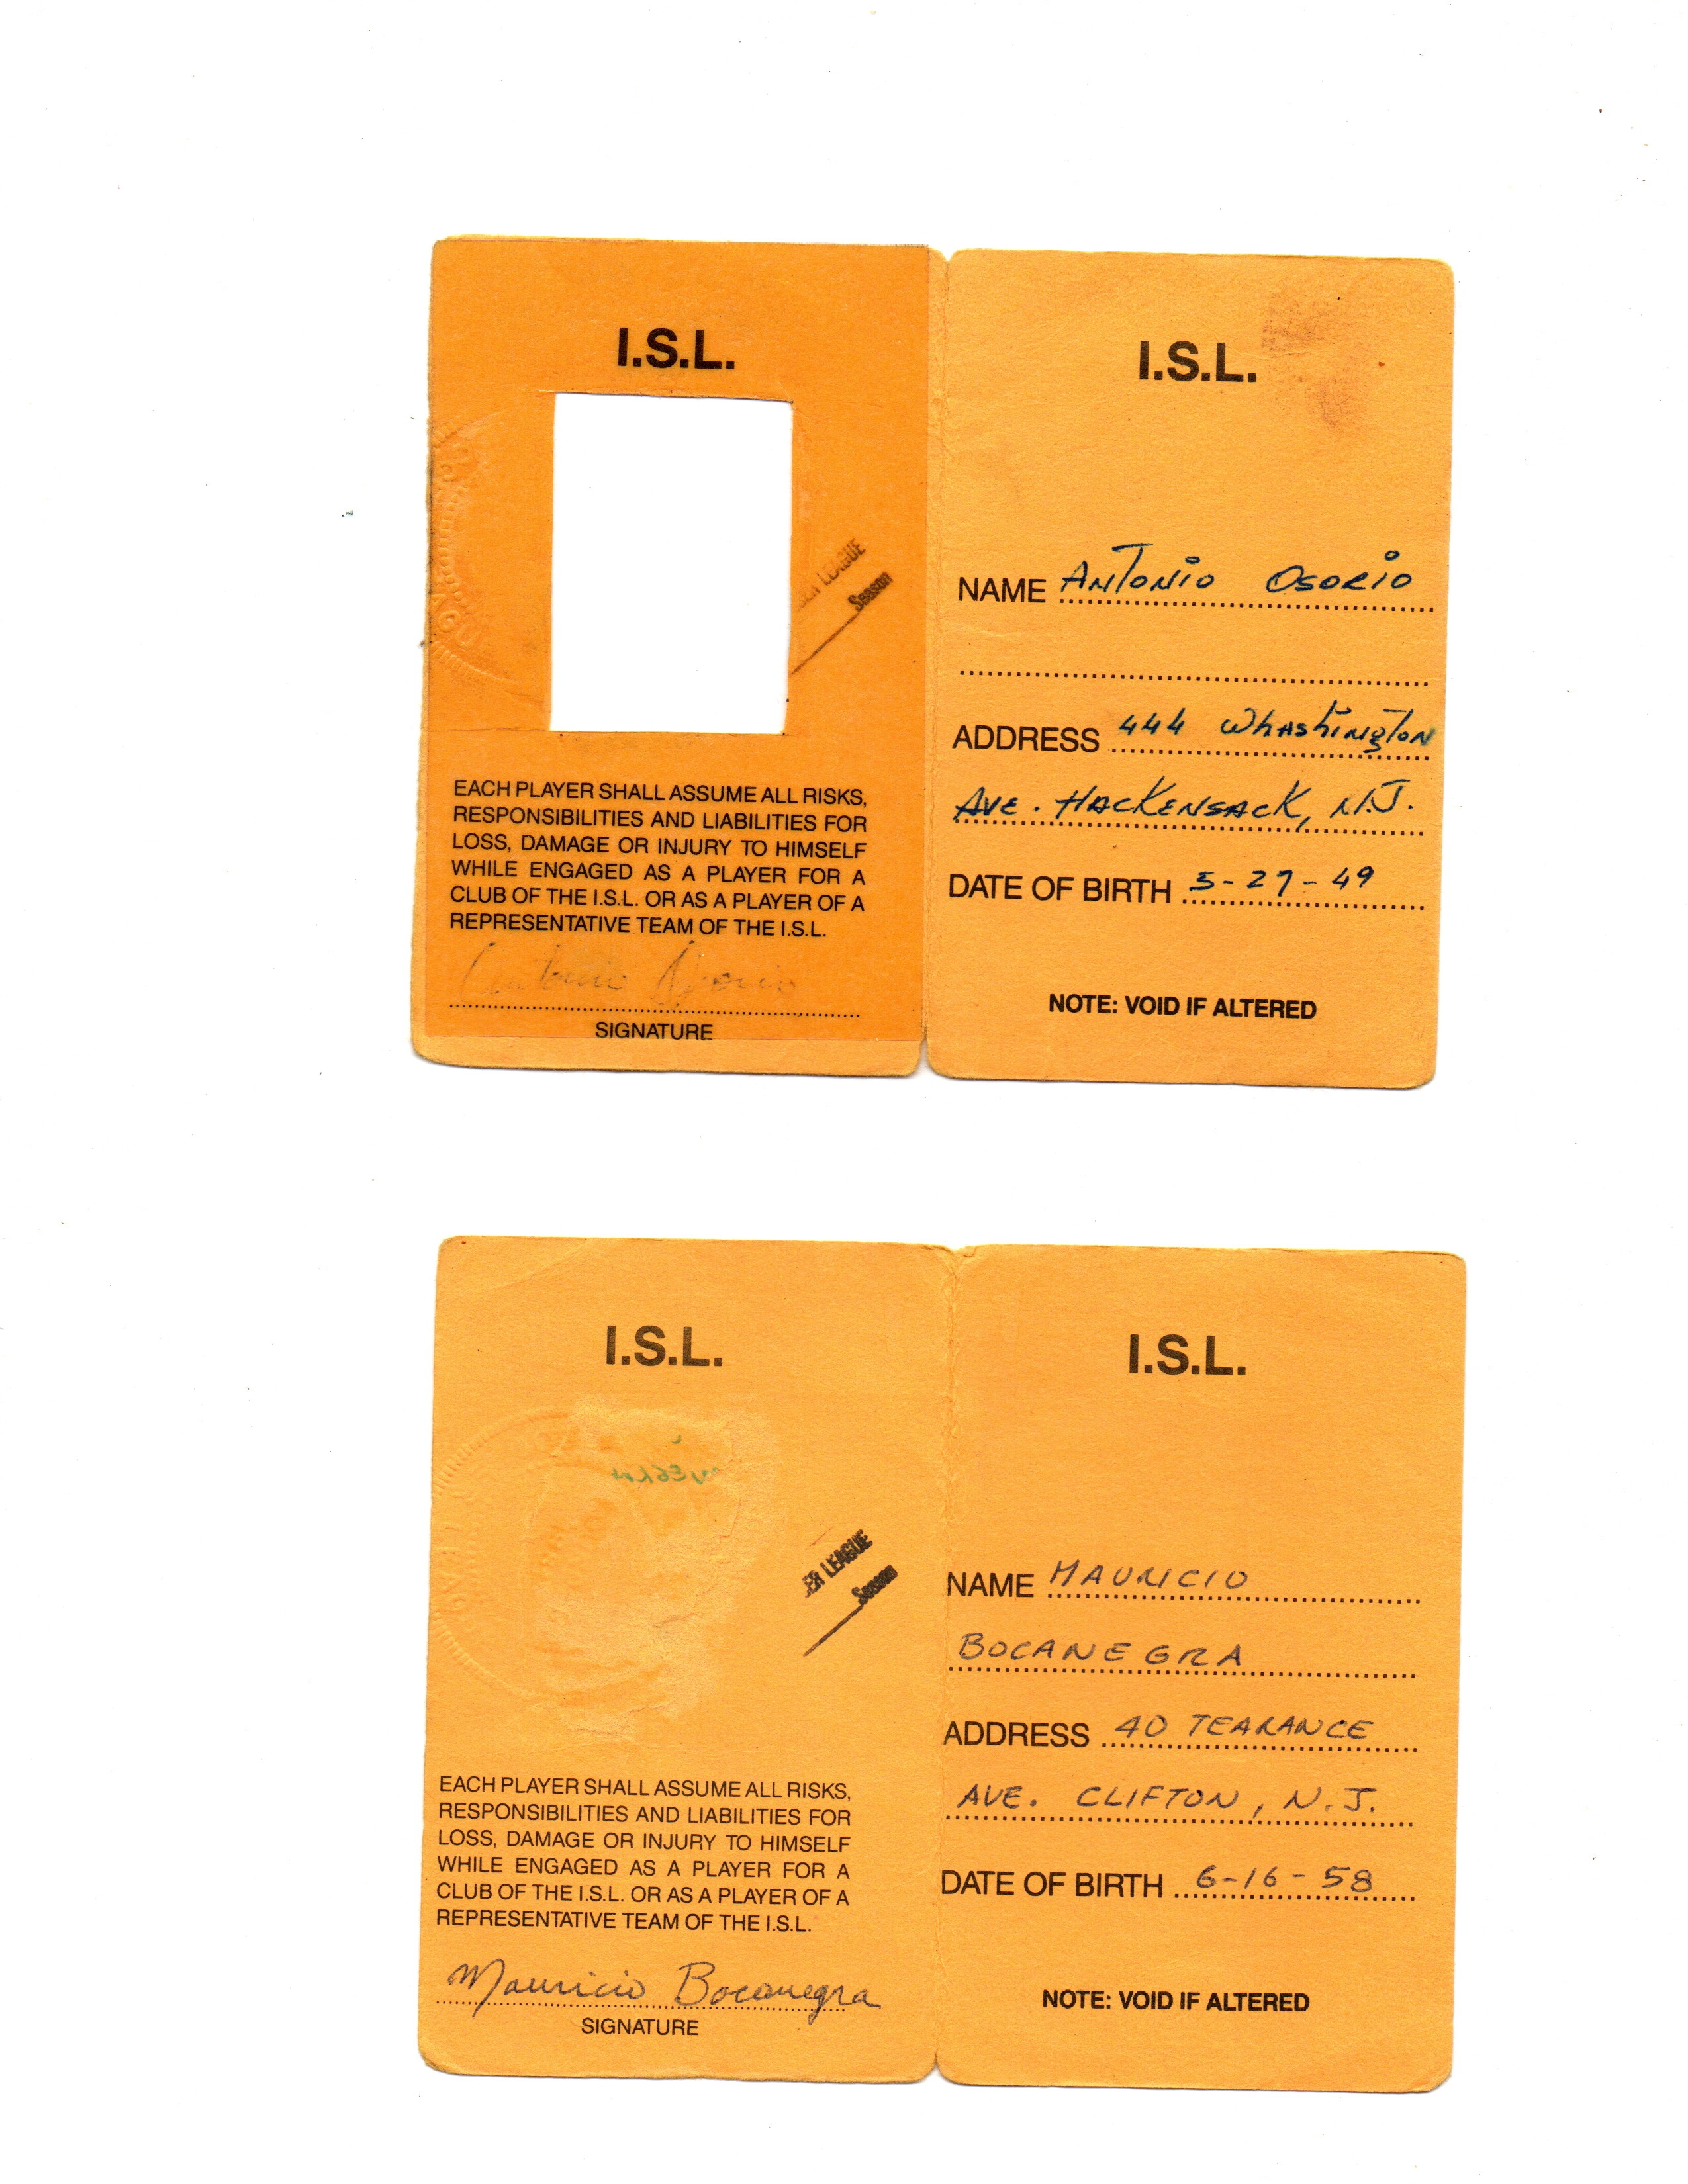 I.S.L.
LEAGUE
Season
EACH PLAYER SHALL ASSUME ALL RISKS,
RESPONSIBILITIES AND LIABILITIES FOR
LOSS, DAMAGE OR INJURY TO HIMSELF
WHILE ENGAGED AS A PLAYER FOR A
CLUB OF THE I.S.L. OR AS A PLAYER OF A
REPRESENTATIVE TEAM OF THE I.S.L.
Antonio Osorio
SIGNATURE
I.S.L.
NAME ANTONIO OSORIO
ADDRESS 444 WHASHINGTON
AVE. HACKENSACK, N.J.
DATE OF BIRTH 5-27-49
NOTE: VOID IF ALTERED
I.S.L.
LEAGUE
Season
EACH PLAYER SHALL ASSUME ALL RISKS,
RESPONSIBILITIES AND LIABILITIES FOR
LOSS, DAMAGE OR INJURY TO HIMSELF
WHILE ENGAGED AS A PLAYER FOR A
CLUB OF THE I.S.L. OR AS A PLAYER OF A
REPRESENTATIVE TEAM OF THE I.S.L.
Mauricio Bocanegra
SIGNATURE
I.S.L.
NAME MAURICIO
BOCANEGRA
ADDRESS 40 TEARANCE
AVE. CLIFTON, N.J.
DATE OF BIRTH 6-16-58
NOTE: VOID IF ALTERED